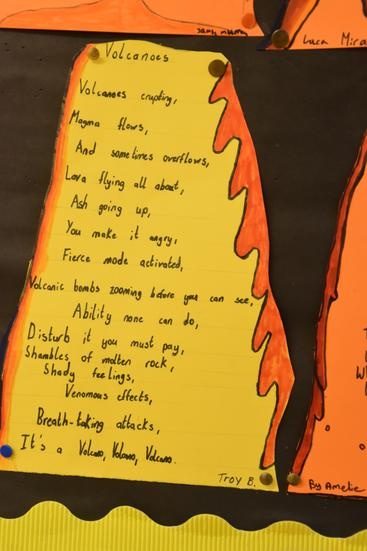 Volcanoes
Volcanoes erupting,
Magma flows,
And sometimes overflows,
Lava flying all about,
Ash going up,
You make it angry,
Fierce mode activated,
Volcanic bombs zooming before your can see,
Ability none can do,
Disturb it you must pay,
Shambles of molten rock,
Shady feelings,
Venomous effects,
Breath-taking attacks,
It's a Volcano, Volcano, Volcano.
Troy B.
Luca Mira
By Amelie